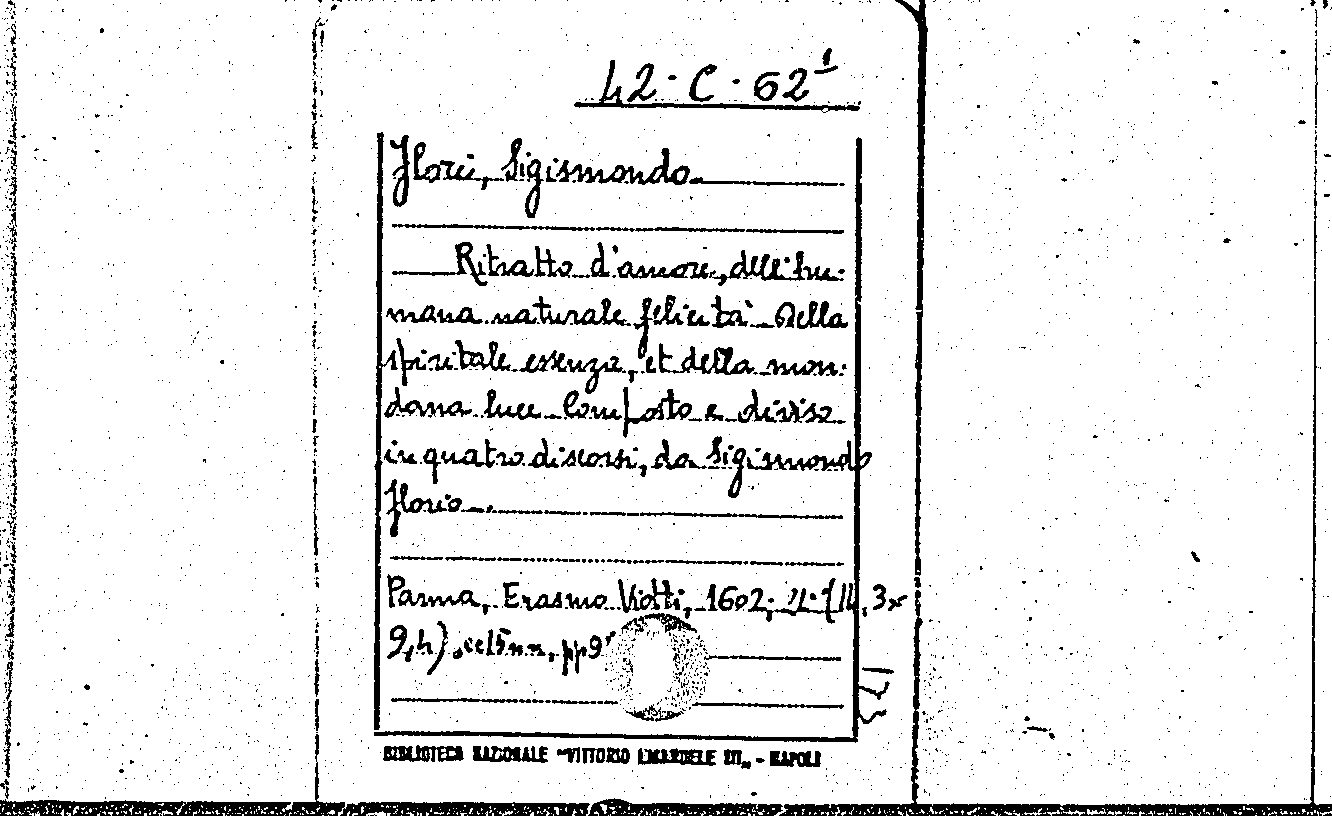 42·C·62¹
Florii, Sigismondo
Ritratto d'amore, dell'hu-
mana naturale felicità. Della
spiritale essenza, et della mon-
dana luce composto e diviso
in quatro discorsi, da Sigismondo
Florio.
Parma, Erasmo Viotti, 1602; (14,3x
9,4), cc15nn, pp9
BIBLIOTECA NAZIONALE "VITTORIO EMANUELE III" - NAPOLI